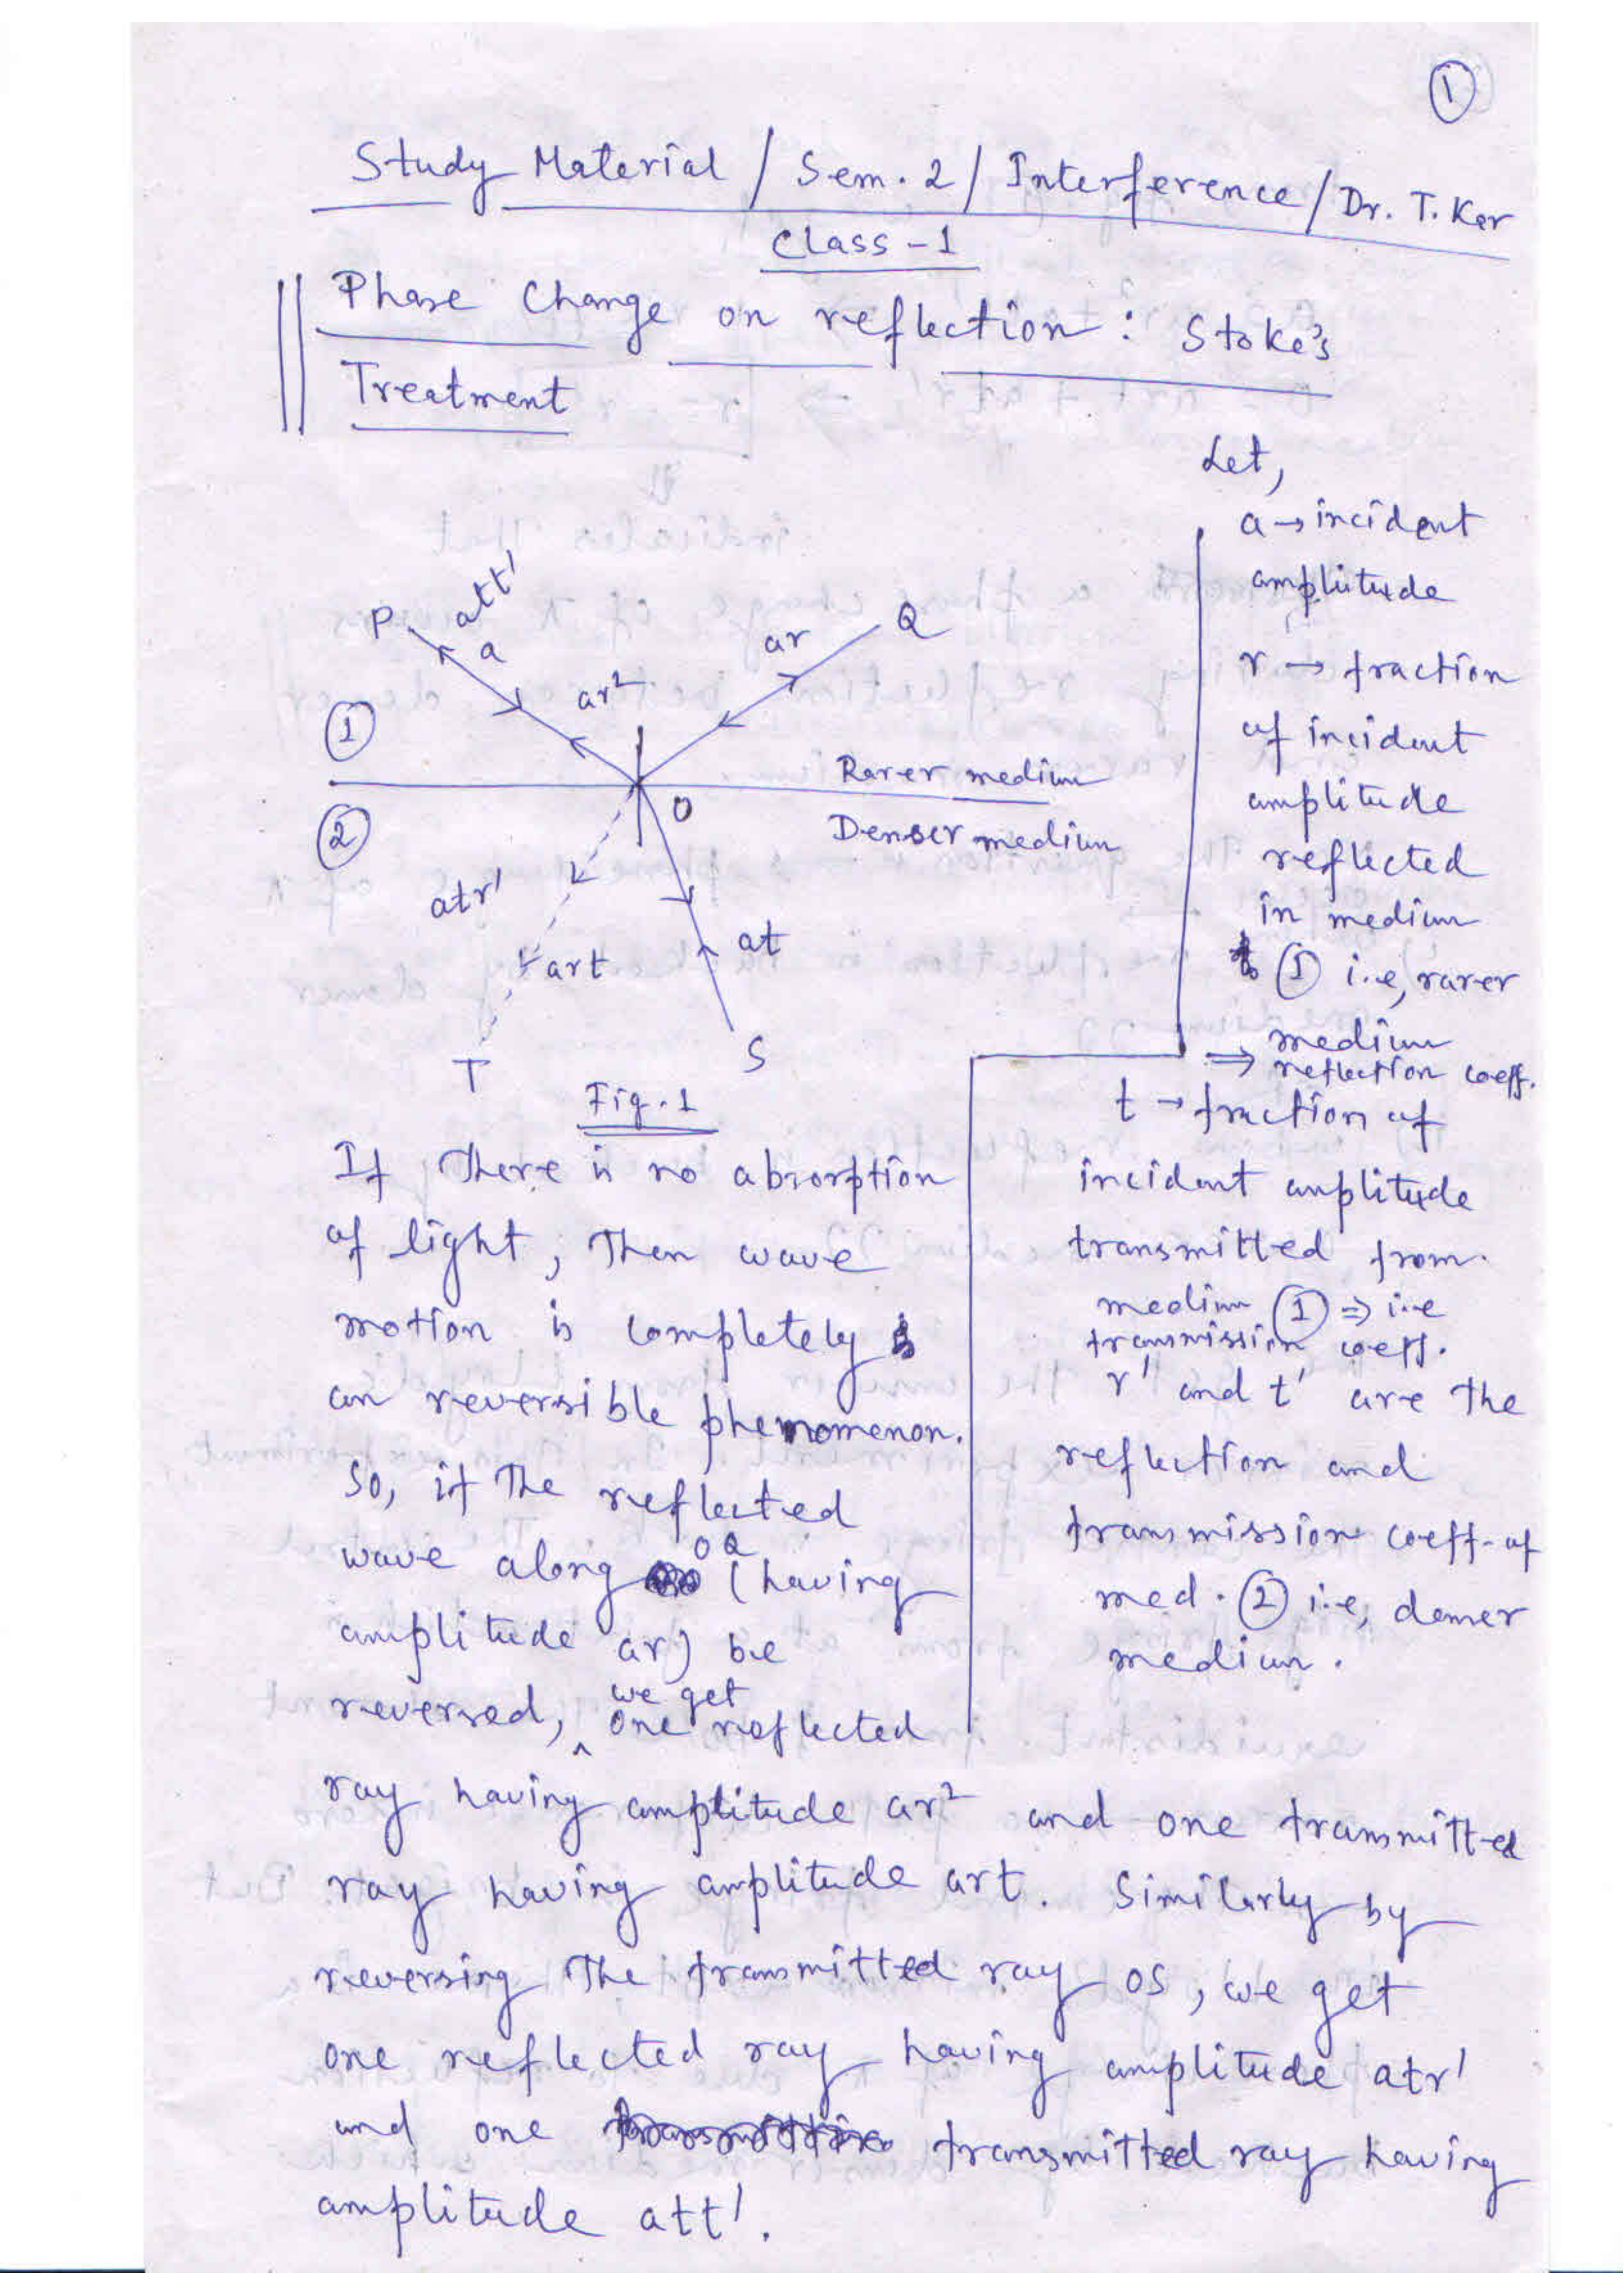 1
Study Material / Sem. 2 / Interference / Dr. T. Kar
Class - 1
Phase Change on reflection : Stoke's
Treatment
P
att'
a
ar²
ar
Q
1
Rarer medium
O
2
Denser medium
atr'
art
at
T
S
Fig. 1
Let,
a → incident
amplitude
r → fraction
of incident
amplitude
reflected
in medium
1 i.e, rarer
medium
⇒ reflection coeff.
t → fraction of
incident amplitude
transmitted from
medium 1 ⇒ i.e
transmission coeff.
r' and t' are the
reflection and
transmission coeff. of
med. 2 i.e, denser
medium.
If There is no absorption
of light, Then wave
motion is completely
an reversible phenomenon.
So, if The reflected
wave along OQ (having
amplitude ar) be
reversed, we get one reflected
ray having amplitude ar² and one transmitted
ray having amplitude art. Similarly by
reversing The transmitted ray OS, we get
one reflected ray having amplitude atr'
and one transmitted ray having
amplitude att'.